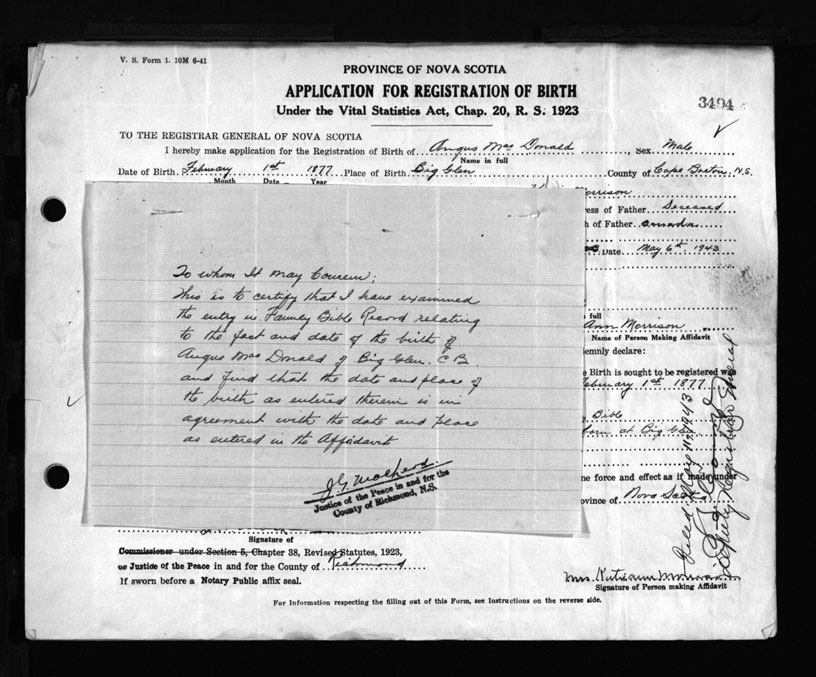 V. S. Form 1. 10M 6-41
PROVINCE OF NOVA SCOTIA
APPLICATION FOR REGISTRATION OF BIRTH
Under the Vital Statistics Act, Chap. 20, R. S. 1923
3494
TO THE REGISTRAR GENERAL OF NOVA SCOTIA
I hereby make application for the Registration of Birth of Angus Mac Donald, Sex Male
Name in full
Date of Birth February 1st 1877 Place of Birth Big Glen County of Cape Breton, N.S.
Month Date Year
Morrison
ress of Father Deceased
h of Father
Date May 6th, 1943
To whom It may Concern;
This is to certify that I have examined
the entry in Family Bible Record relating
to the fact and date of the birth of
Angus Mac Donald of Big Glen. C B.
and find that the date and place of
the birth as entered therein is in
agreement with the date and place
as entered in the Affidavit
Justice of the Peace in and for the
County of Richmond, N.S.
n full
Ann Morrison
Name of Person Making Affidavit
lemnly declare:
e Birth is sought to be registered was
February 1st 1877
Bible
born at Big Glen
me force and effect as if made under
ovince of Nova Scotia
Filed May 11, 1943
Deputy Registrar General
Signature of
Commissioner under Section 5, Chapter 38, Revised Statutes, 1923,
or Justice of the Peace in and for the County of Richmond
If sworn before a Notary Public affix seal.
Mrs.
Signature of Person making Affidavit
For Information respecting the filling out of this Form, see Instructions on the reverse side.